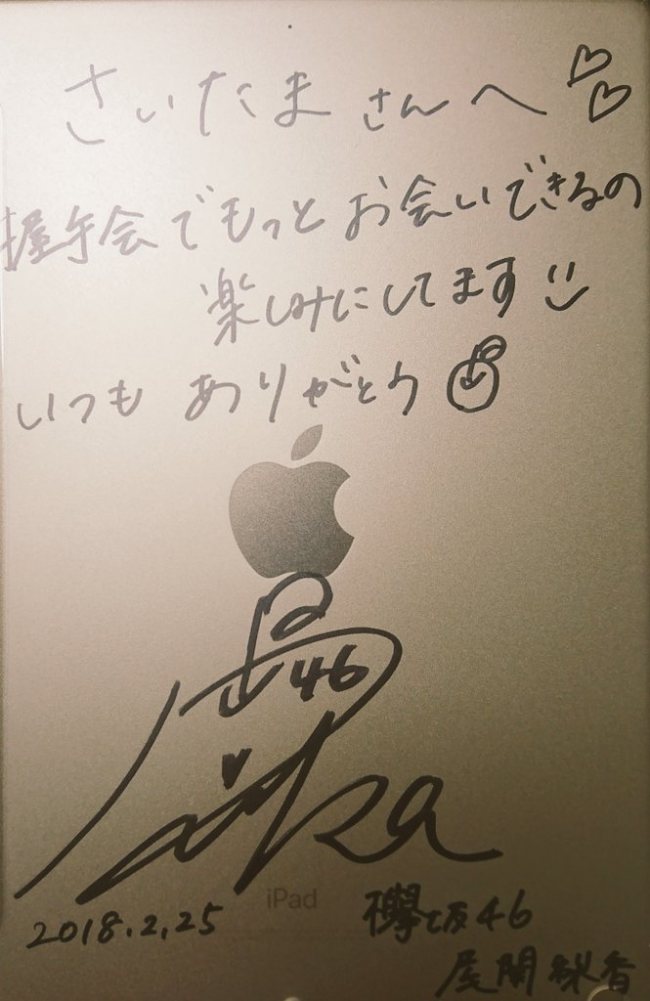 さいたまさんへ♡♡
握手会でもっとお会いできるの
楽しみにしてます
いつもありがとう
46
Rika
iPad
2018.2.25
欅坂46
尾関梨香